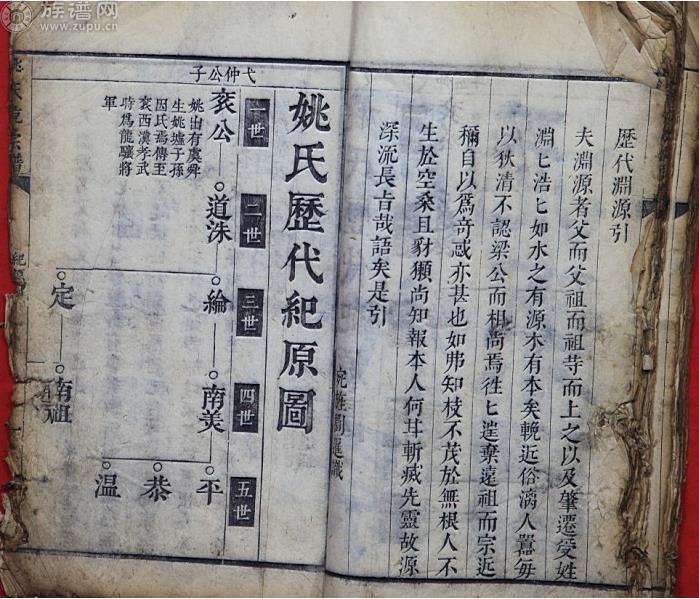 族谱网
www.zupu.cn
歷代淵源引
夫淵源者父而父祖而祖寺而上之以及肇遷受姓
淵匕浩匕如水之有源木有本矣輓近俗漓人囂每
以狄清不認梁公而相焉徃匕棄遠祖而宗近
稱自以爲竒惑亦甚也如弗知枝不茂於無根人不
生於空桑且豺獺尚知報本人何斬先靈故源
深流長占哉語矣是引
姚氏歷代紀原圖
一世
二世
三世
四世
五世
弋仲公子
衮公
道洙
綸
南美
平
恭
温
定
南祖
姚出有虞舜
生姚墟子孫
因氏焉傳至
衮西漢孝武
時爲龍驤將
軍